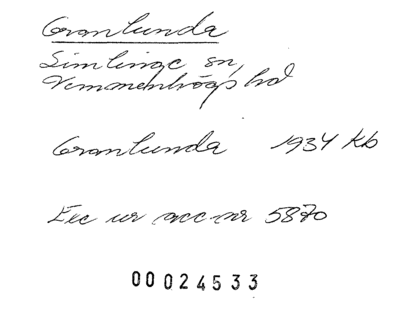 Granlunda
Simlinge sn,
Vemmenhögs hd
Granlunda 1934 Kb
Exc ur acc nr 5870
00024533